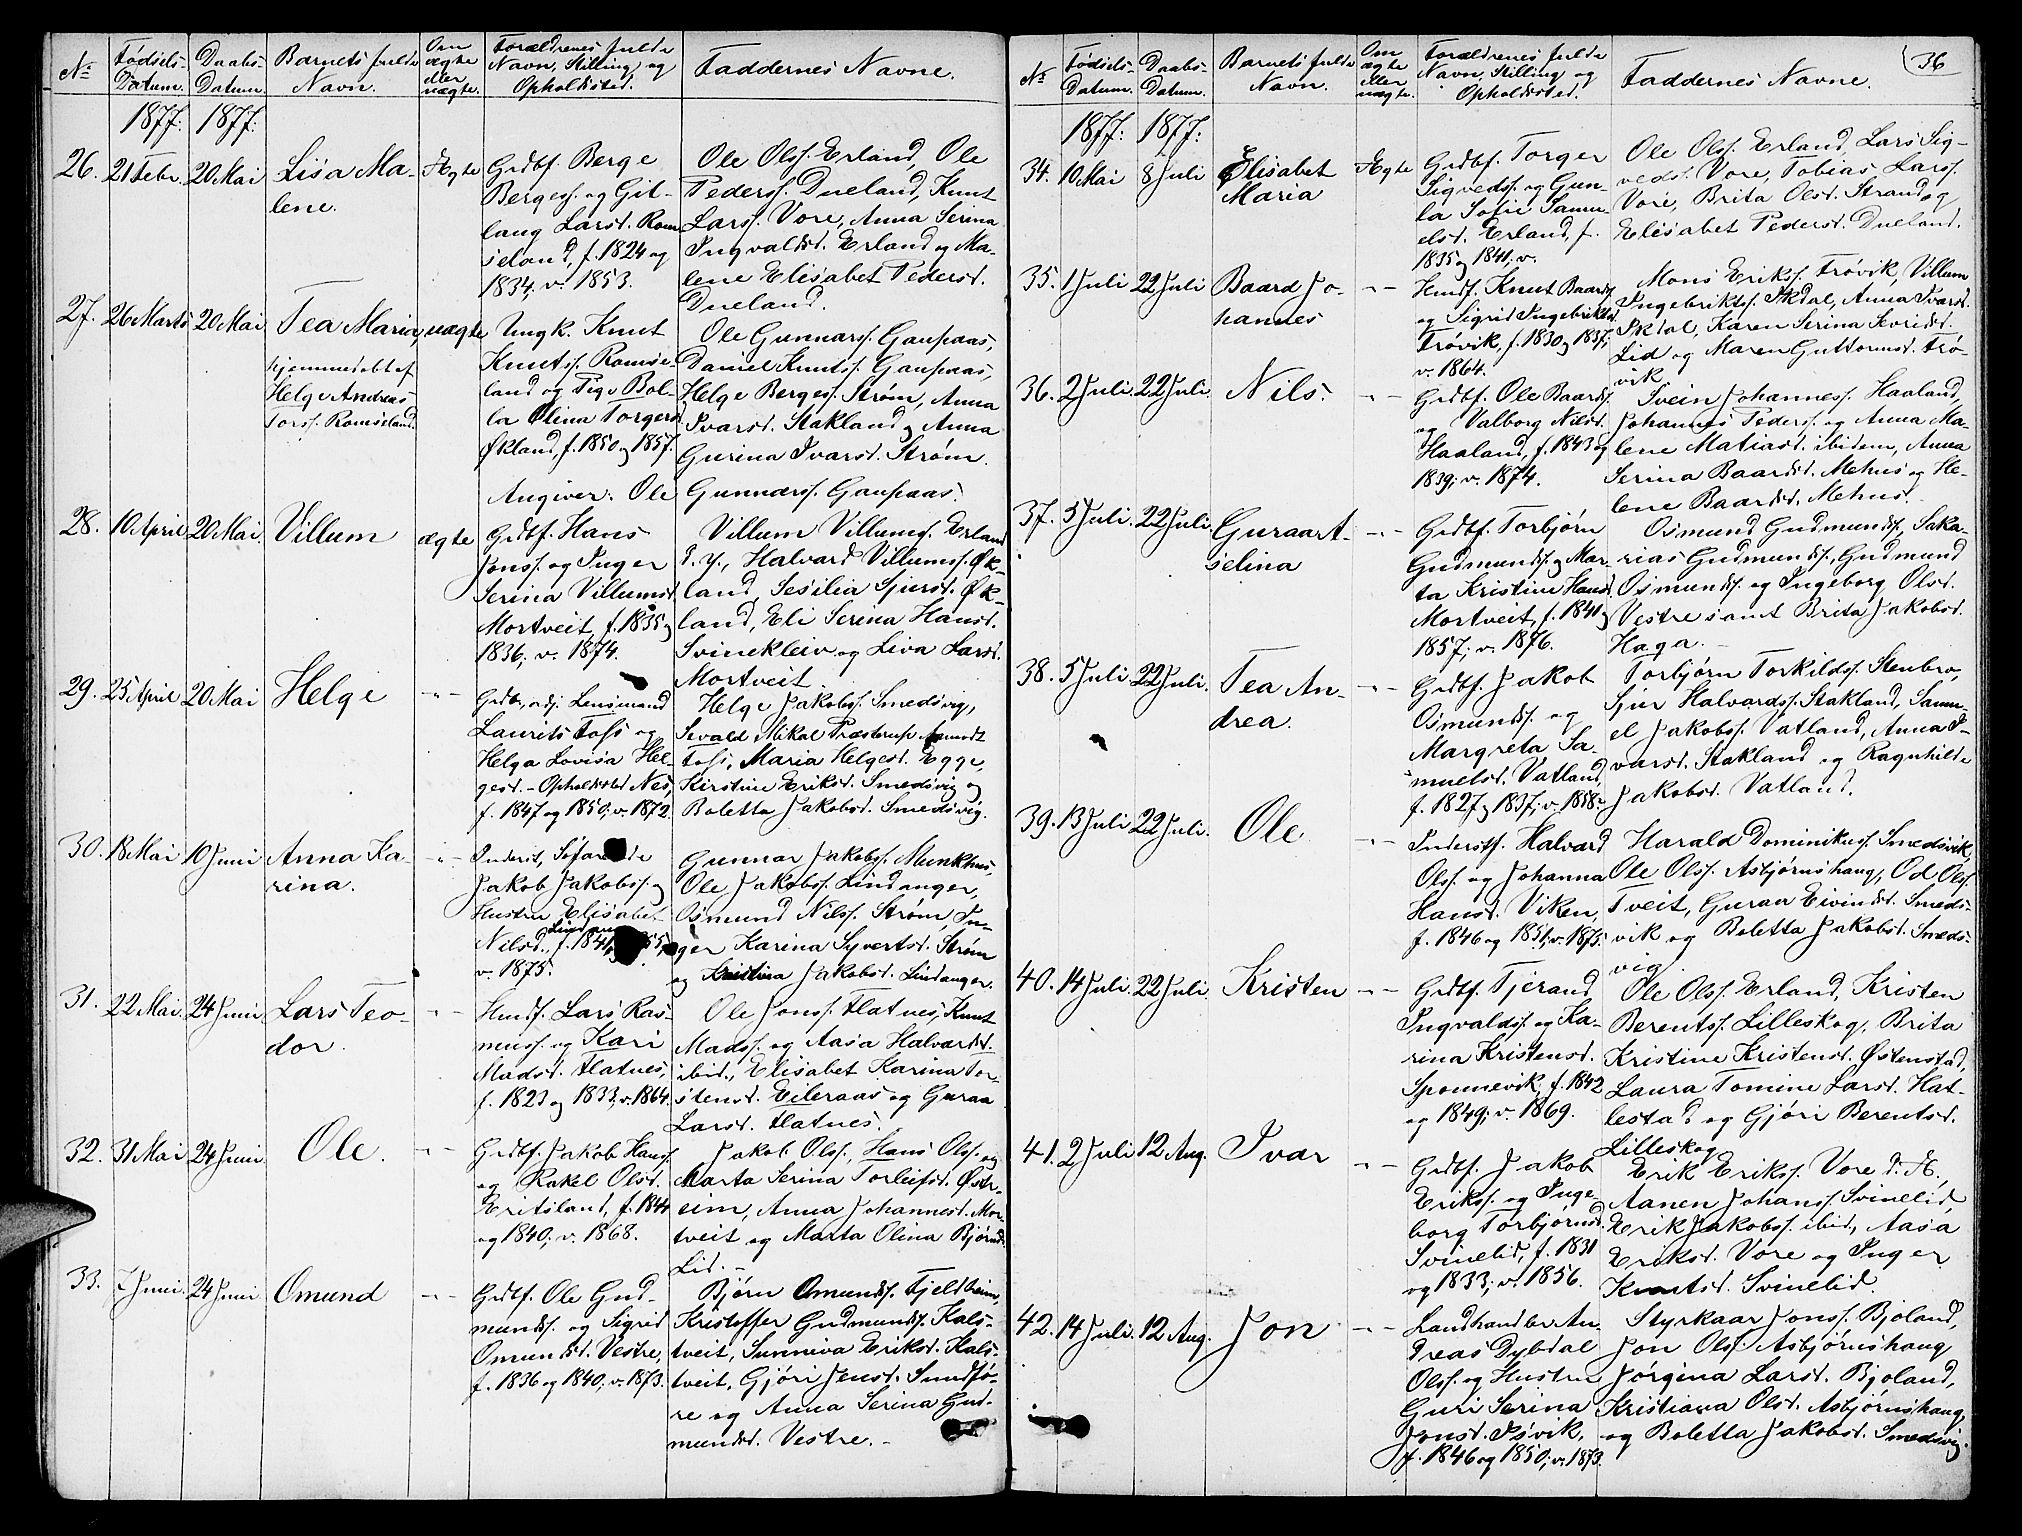 36
No
Fødsels-
Datum.
Daabs-
Datum.
Barnets fulde
Navn.
Om
ægte
eller
uægte.
Forældrenes fulde
Navn, Stilling og
Opholdssted.
Faddernes Navne.
1877: 1877:
26. 21 Febr. 20 Mai
Lisa Ma-
lene.
Ægte
Grdbf. Berge
Bergess. og Git-
laug Larsd. Rom-
seland, f. 1824 og
1834, v. 1853.
Ole Olss. Erland, Ole
Pederss. Dueland, Knut
Larss. Vore, Anna Serina
Ingvaldsd. Erland og Ma-
lene Elisabet Pedersd.
Dueland.
27. 26 Marts 20 Mai
Tea Maria,
hjemmedøbt af
Helge Andreas
Torss. Romseland.
uægte
Ungk. Knut
Knutss. Romse-
land og Pige Bol-
la Olina Torgersd.
Økland, f. 1850 og 1857.
Ole Gunnarss. Gaupaas,
Daniel Knutss. Gaupaas,
Helge Bergess. Strøm, Anna
Ivarsd. Stakland og Anna
Gurina Ivarsd. Strøm.
Angiver: Ole Gunnarss. Gaupaas.
28. 10 April 20 Mai
Villum
ægte
Grdbf. Hans
Jonss. og Inger
Serina Villumsd.
Mortveit, f. 1835 og
1836, v. 1874.
Villum Villumss. Erland
d. Y., Halvard Villumss. Øk-
land, Sesilia Sjursd. Øk-
land, Eli Serina Hansd.
Svinekleiv og Liva Larsd.
Mortveit.
29. 25 April 20 Mai
Helge
- " -
Lensmand
Laurits Foss og
Helga Lovisa Hel-
gesd. - Opholdssted Nes,
f. 1847 og 1850, v. 1872.
Helge Jakobss. Smedsvig,
Sevald Mikal Præsterud Aamodt
Foss, Maria Helgesd. Egge,
Kirstine Eriksd. Smedsvig og
Boletta Jakobsd. Smedsvig.
30. 18 Mai 10 Juni
Anna Ka-
rina.
- " -
Inderst, Søfarende
Jakob Jakobss. og
Hustru Elisabet
Nilsd., f. 1841
v. 1875.
Gunnar Jakobss. Munkhus,
Ole Jakobss. Lindanger,
Osmund Nilss. Strøm, In-
ger Karina Syvertsd. Strøm
og Kristina Jakobsd. Lindanger.
31. 22 Mai 24 Juni
Lars Teo-
dor.
- " -
Husmf. Lars Ras-
muss. og Kari
Madsd. Flatnes,
f. 1823 og 1833, v. 1864.
Ole Jonss. Flatnes, Knut
Madss. og Aasa Halvardsd.
ibid., Elisabet Karina Tor-
stensd. Eileraas og Guraa
Larsd. Flatnes.
32. 31 Mai 24 Juni
Ole.
- " -
Grdbf. Jakob Hanss.
og Rakel Olsd.
Eritsland, f. 1844
og 1840, v. 1868.
Jakob Olss., Hans Olss. og
Marta Serina Torleifsd. Østr-
eim, Anna Johannesd. Mor-
tveit og Marta Olina Bjørnsd.
Lid. -
33. 7 Juni. 24 Juni
Omund
- " -
Grdbf. Ole Gud-
mundss. og Sigrid
Omundsd. Vestre,
f. 1836 og 1840, v. 1873.
Bjørn Omundss. Fjeldheim,
Kristoffer Gudmundss. Kals-
tveit, Sunniva Eriksd. Kals-
tveit, Gjøri Jensd. Sundfø-
re og Anna Serina Gud-
mundsd. Vestre. -
No
Fødsels-
Datum.
Daabs-
Datum.
Barnets fulde
Navn.
Om
ægte
eller
uægte.
Forældrenes fulde
Navn, Stilling og
Opholdssted.
Faddernes Navne.
1877: 1877:
34. 10 Mai 8 Juli
Elisabet
Maria
Ægte
Grdbf. Torger
Sigvedss. og Gun-
la Sofie Samu-
elsd. Erland, f.
1835 og 1841, v.
Ole Olss. Erland, Lars Sig-
vedss. Vore, Tobias Larss.
Vore, Brita Olsd. Strand og
Elisabet Pedersd. Dueland.
35. 1 Juli 22 Juli
Baard Jo-
hannes
- " -
Husmf. Knut Baardss.
og Sigrid Ingebriktsd.
Frøvik, f. 1830 og 1837,
v. 1864.
Mons Erikss. Frøvik, Villum
Ingebriktss. Ikdal, Anna Ivarsd.
Ikdal, Karen Serina Sevridsd.
Lid og Maren Guttormsd. Frø-
vik.
36. 2 Juli 22 Juli.
Nils.
- " -
Grdbf. Ole Baardss.
og Valborg Nilsd.
Haaland, f. 1843 og
1839, v. 1874.
Svein Johanness. Haaland,
Johannes Pederss. og Anna Ma-
lene Matiasd. ibidem, Anna
Serina Baardsd. Mehus og He-
lene Baardsd. Mehus.
37. 5 Juli. 22 Juli.
Guraart-
selina
- " -
Grdbf. Torbjørn
Gudmundss. og Mar-
ta Kristine Hansd.
Mortveit, f. 1841 og
1857, v. 1876.
Osmund Gudmundss., Saka-
rias Gudmundss., Gudmund
Osmundss. og Ingeborg Olsd.
Vestre samt Brita Jakobsd.
Haga. -
38. 5 Juli 22 Juli.
Tea An-
drea.
- " -
Grdbf. Jakob
Osmundss. og
Margreta Sa-
muelsd. Vatland,
f. 1827 og 1837, v. 1858.
Torbjørn Torkildss. Stenbro,
Sjur Halvardss. Stakland, Samu-
el Jakobss. Vatland, Anna I-
varsd. Stakland og Ragnhilde
Jakobsd. Vatland.
39. 13 Juli 22 Juli.
Ole.
- " -
Inderstf. Halvard
Olss. og Johanna
Hansd. Viken,
f. 1846 og 1851, v. 1875.
Harald Dominikuss. Smedsvik,
Ole Olss. Asbjørnshaug, Od Olss.
Tveit, Guraa Eivindsd. Smeds-
vik og Boletta Jakobsd. Smeds-
vig.
40. 14 Juli. 22 Juli.
Kristen
- " -
Grdbf. Tjerand
Ingvaldss. og Ka-
rina Kristensd.
Sponnevik, f. 1842
og 1849, v. 1869.
Ole Olss. Erland, Kristen
Berentss. Lilleskog, Brita
Kristine Kristensd. Østenstad,
Laura Tomine Larsd. Hat-
lestad og Gjøri Berentsd.
Lilleskog.
41. 2 Juli 12 Aug.
Ivar
- " -
Grdbf. Jakob
Erikss. og Inge-
borg Torbjørnsd.
Svinelid, f. 1831
og 1833, v. 1856.
Erik Erikss. Vore d. Æ,
Aanen Johanss. Svinelid,
Erik Jakobss. ibid., Aasa
Eriksd. Vore og Inger
Knutsd. Svinelid.
42. 14 Juli. 12 Aug.
Jon
- " -
Landhandler An-
dreas Dybdal
Olss. og Hustru
Guri Serina
Jonsd. Isvik,
f. 1846 og 1850, v. 1873.
Styrkaar Jonss. Bjoland,
Jon Olss. Asbjørnshaug
Jørgina Larsd. Bjoland,
Kristiana Olsd. Asbjørnshaug,
og Boletta Jakobsd. Smedsvig.